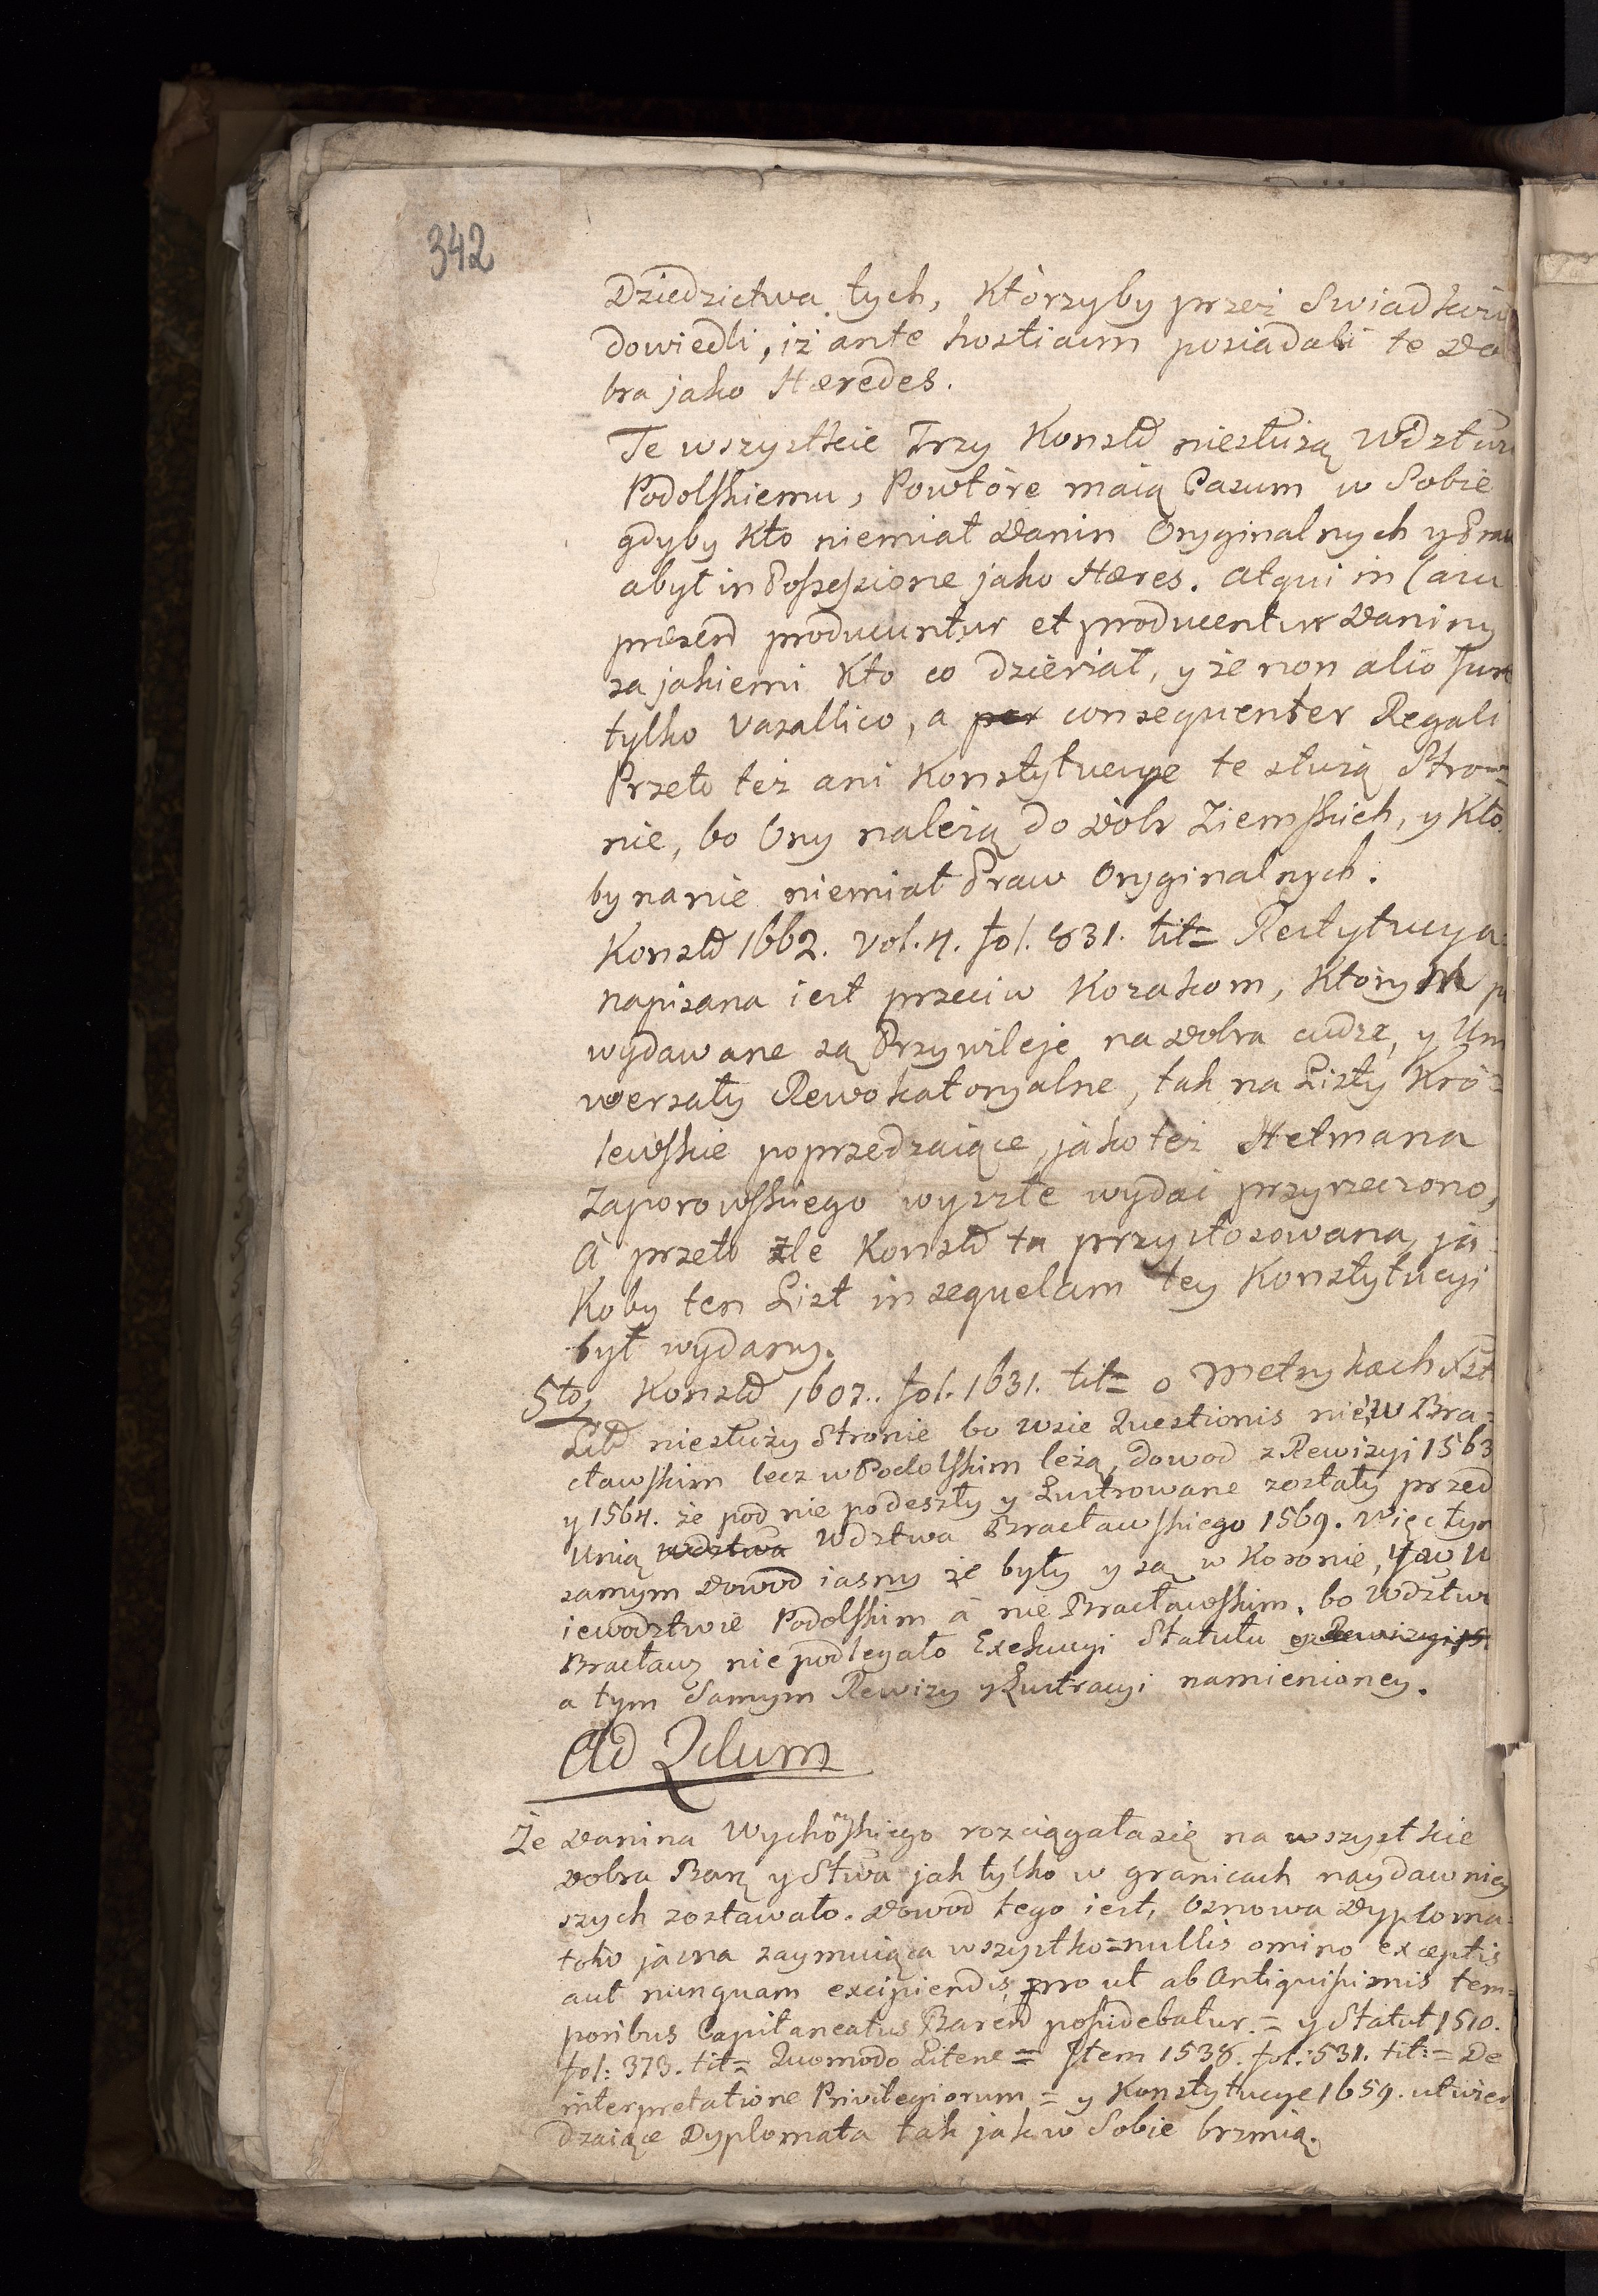 342
Dziedzictwa tych, Którzyby przez Swiadkow
dowiedli, iż ante hosticum posiadali te Do
bra jako Hæredes.
Te wszystkie Trzy Konstt niesłuzą Wdztwu
Podolskiemu, Powtóre maią Casum w Sobie
gdyby Kto niemiał Danin Oryginalnych y Praw
a był in Possessione jako Hæres. Atqui in Casu
præsen producuntur et producentur Daniny
za jakiemi Kto co dzierżał, y że non alio Jure
tylko Vasallico, a per consequenter Regali
Przeto też ani Konstytucye te służą Stro=
nie, bo Ony należą do Dóbr Ziemskich, y Kto
by na nie niemiał Praw Oryginalnych.
Konstt 1662. Vol. 4. fol. 831. tit= Restytucya=
napisana iest przeciw Kozakom, Którym
wydawane są Przywileje na Dobra cudze, y Uni
wersały Rewokatoryalne, tak na Listy Kró=
lewskie poprzedzaiące, jako też Hetmana
Zaporowskiego wyszłe wydać przyrzeczono,
A przeto źle Konstt ta przystosowana, ja=
Koby ten List in sequelam tey Konstytucyi
był wydany.
5to Konstt 1607. fol. 1631. tit= o Metrykach
Litt niesłuży Stronie bo wsie Questionis nie w Bra=
cławskim lecz w Podolskim leżą, dowod z Rewizyi 1563
y 1564. że pod nie podeszły y Lustrowane zostały przed
Unią wdztwa Wdztwa Bracławskiego 1569. Więc tym
samym Dowod iasny że były y są w Koronie, y w Wo
iewodztwie Podolskim à nie Bracławskim, bo Wdztwo
Bracławs nie podlegało Exekucyi Statutu y Rewizyi
a tym Samym Rewizy y Lustracyi namienioney.
Ad 2dum
Że Danina Wychowskiego rozciągała się na wszystkie
Dobra Bars y Stwa jak tylko w granicach naydawniey
szych zostawało. Dowod tego iest, Osnowa Dyploma=
toko jasna zaymuiąca wszystko=nullis omino exceptis
aut nunquam excipiendis, pro ut ab Antiquissimis tem=
poribus Capitaneatus Baren possidebatur.= y Statut 1510.
fol: 373. tit= Quomodo Litene= Item 1538. fol: 531. tit:= De
interpretatione Privilegiorum = y Konstytucye 1659. utwier
dzaiące Dyplomata tak jak w Sobie brzmią.